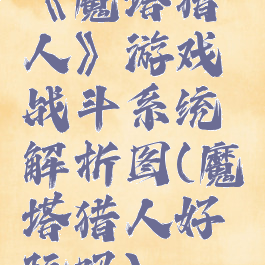 《魔塔猎
人》游戏
战斗系统
解析图(魔
塔猎人好
玩吗)